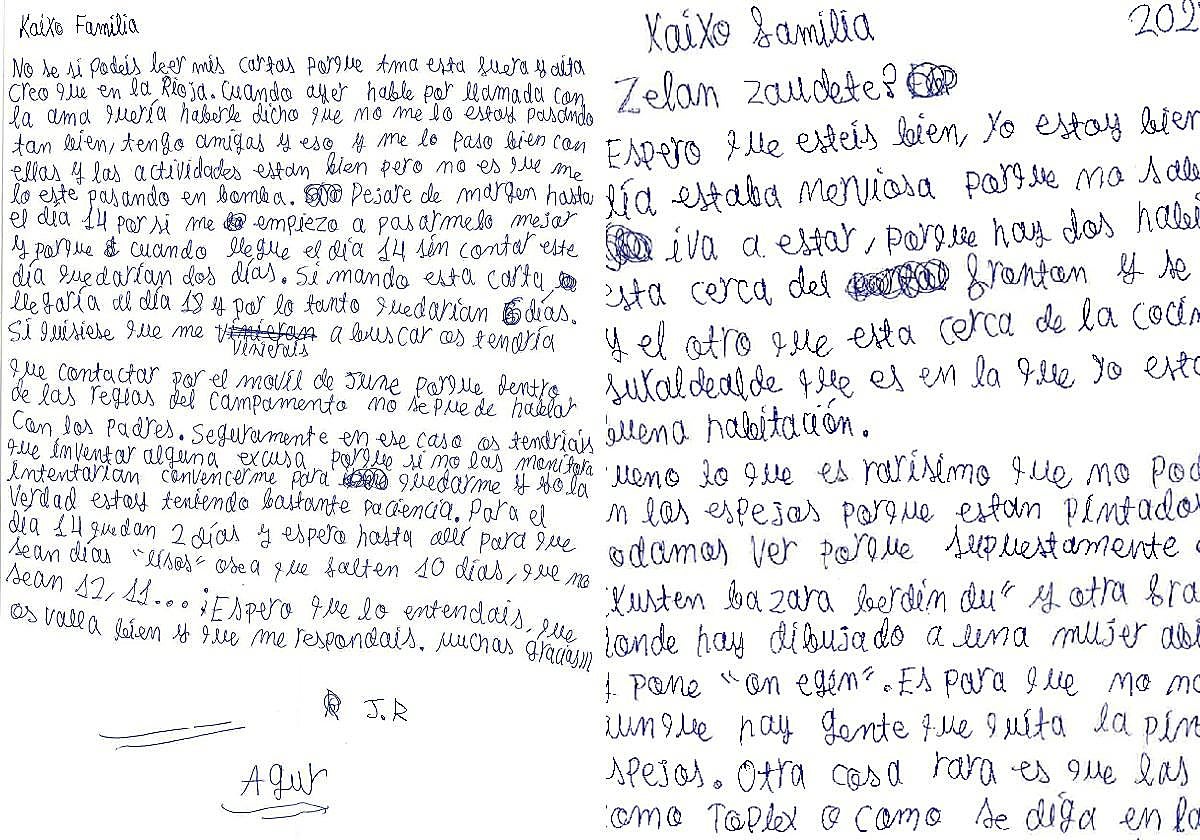 Kaixo Familia
No se si podeis leer mis cartas porque Ama esta fuera y aita
creo que en la Rioja. Cuando ayer hable por llamada con
la ama quería haberle dicho que no me lo estoy pasando
tan bien, tengo amigas y eso y me lo paso bien con
ellas y las actividades estan bien pero no es que me
lo este pasando en bomba. Dejare de margen hasta
el día 14 por si me empiezo a pasarmelo mejor
y porque cuando llegue el día 14 sin contar este
día quedarían dos días. Si mando esta carta
llegaría al día 18 y por lo tanto quedarían 6 días.
Si quisiese que me vinierais a buscar os tendría
que contactar por el movil de June porque dentro
de las reglas del campamento no se puede hablar
Con los padres. Seguramente en ese caso os tendriais
que inventar alguna excusa porque si no las monitora
intentarian convencerme para quedarme y yo la
verdad estoy teniendo bastante paciencia. Para el
día 14 quedan 2 días y espero hasta allí para que
sean días "lisos" osea que falten 10 días, que no
sean 12, 11... ¡Espero que lo entendais, que
os valla bien y que me respondais. Muchas gracias!!!
J.R
Agur
Kaixo familia 202
Zelan zaudete?
Espero que esteis bien, Yo estoy bien
día estaba nerviosa porque no sab
iva a estar, porque hay dos habi
esta cerca del fronton y se
y el otro que esta cerca de la cocin
sukaldealde que es en la que Yo esto
buena habitación.
ueno lo que es rarísimo que no pod
n los espejos porque estan pintados
odamos ver porque supuestamente
Kusten ba zara berdin du" y otra fra
donde hay dibujado a una mujer
pone "on egin". Es para que no
unque hay gente que quita la pin
spejos. Otra cosa rara es que las
omo Toplex o como se diga en la